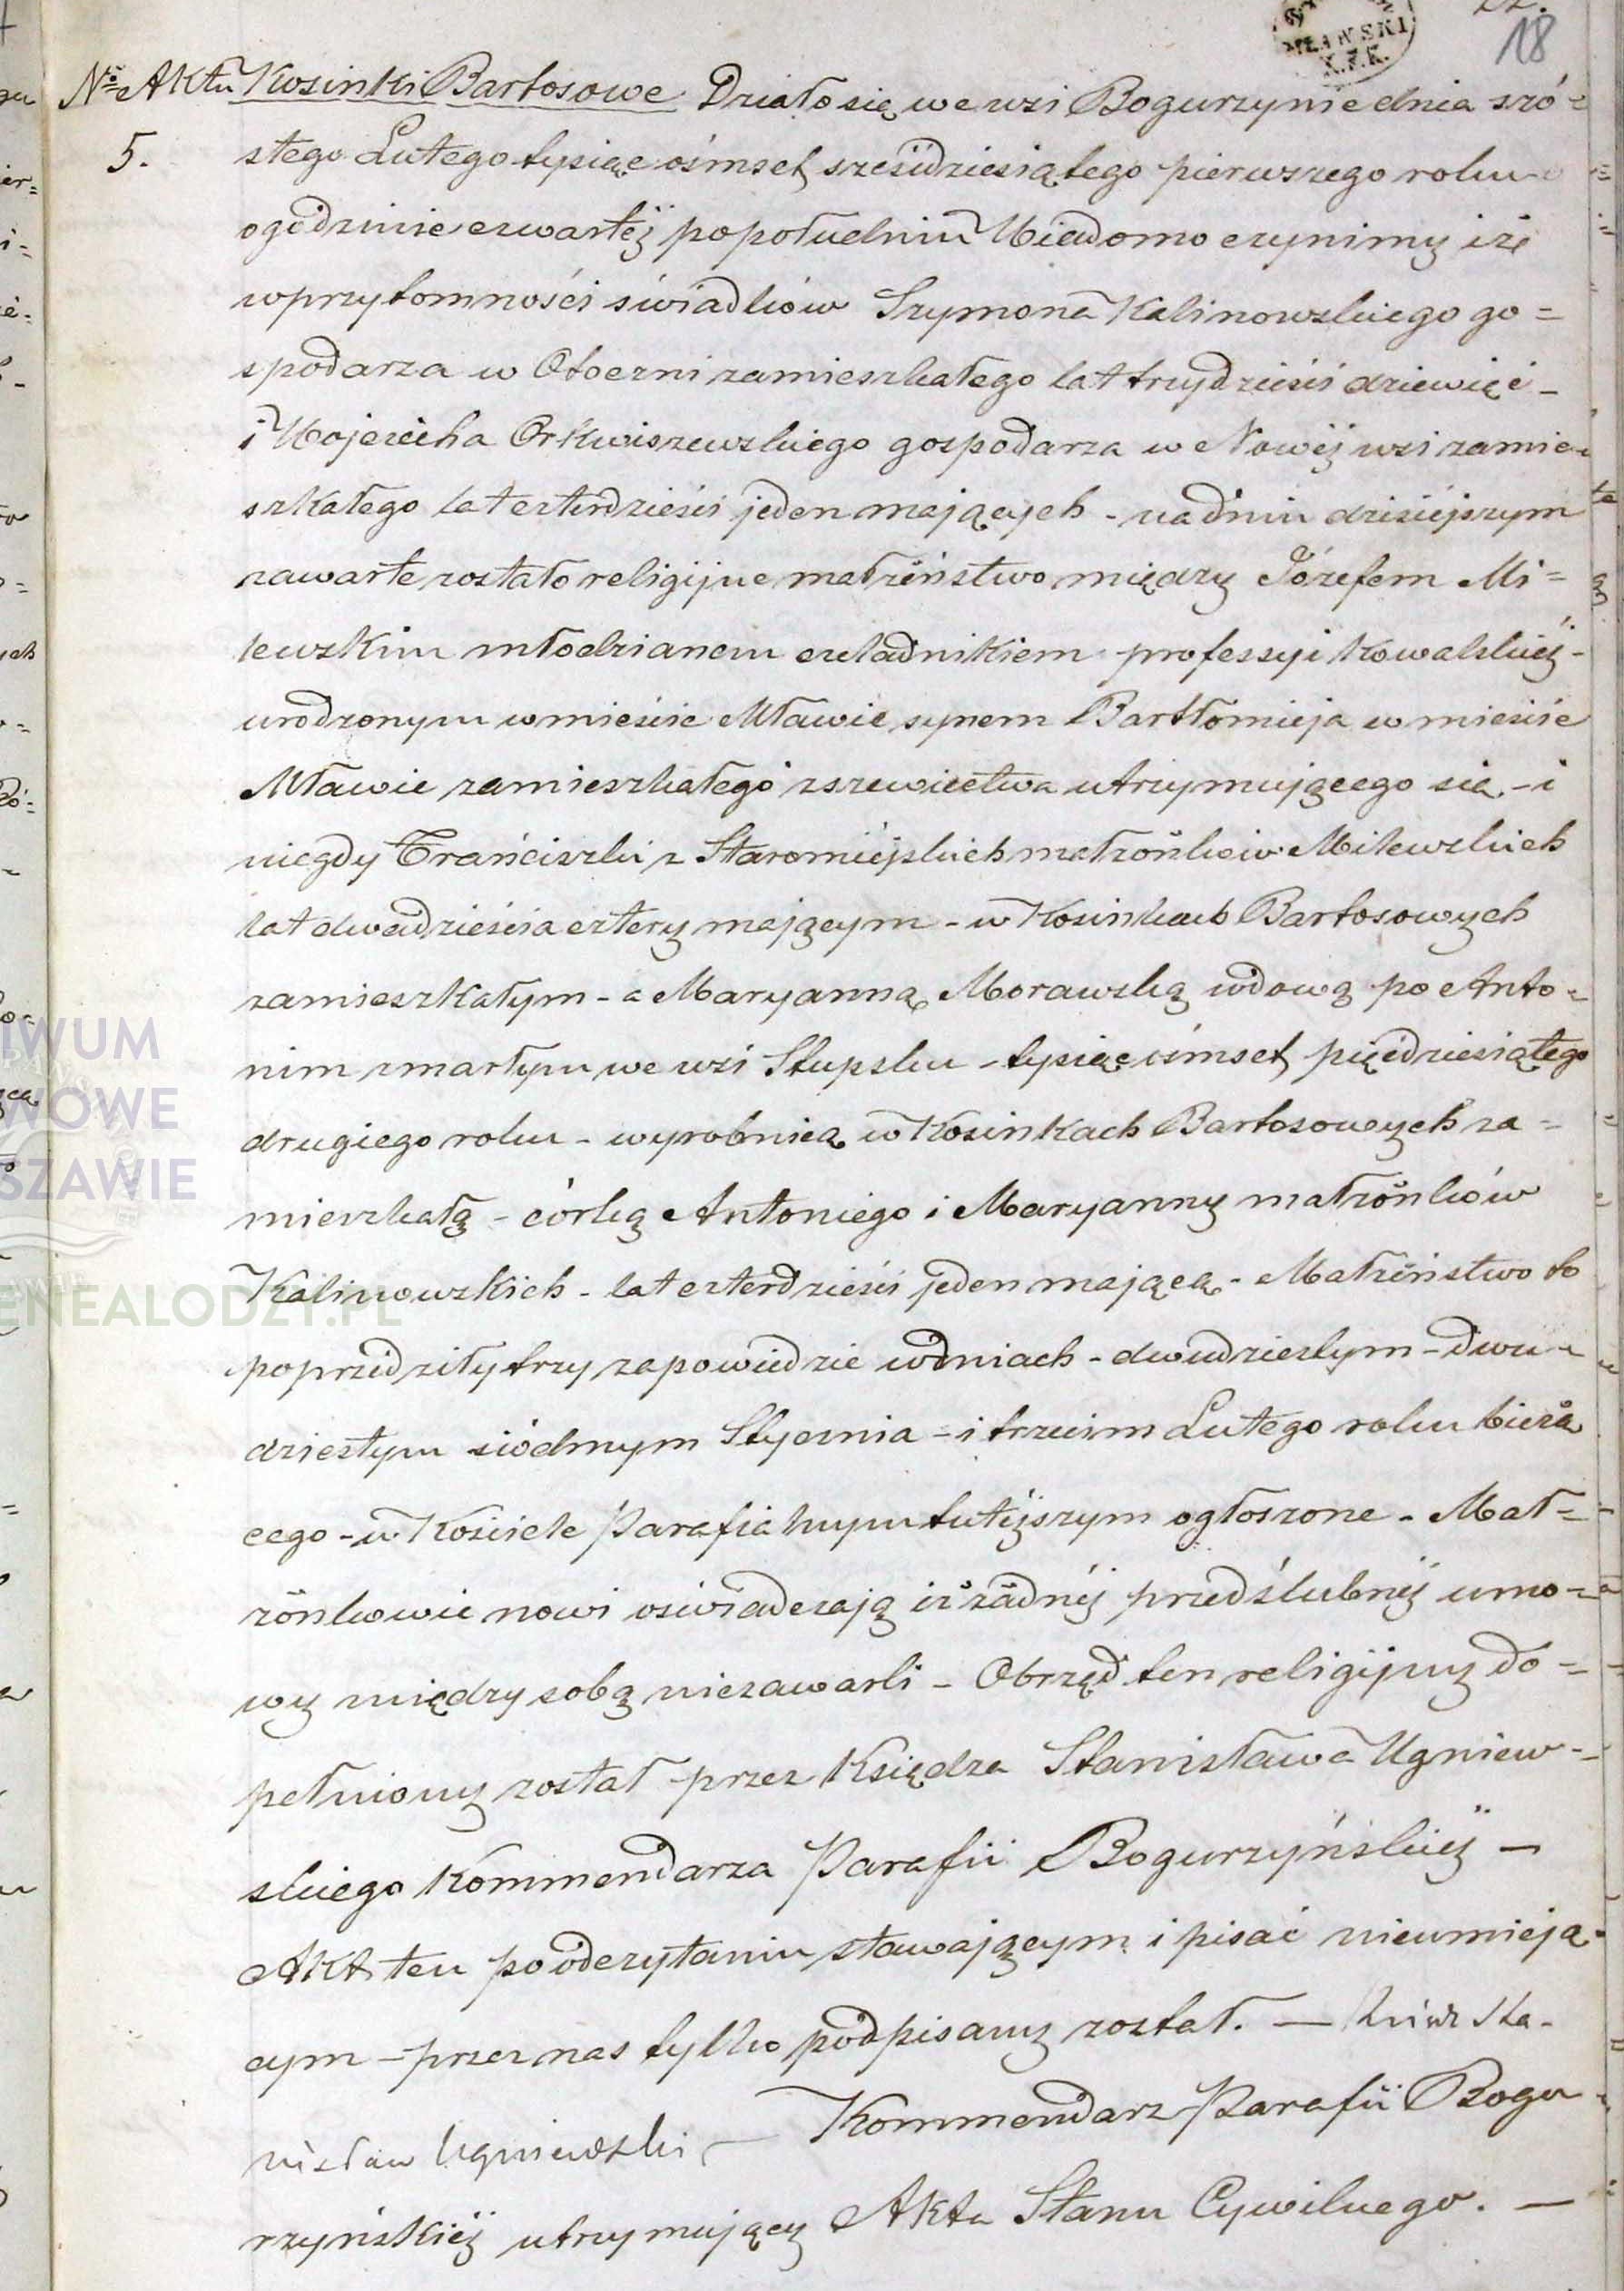 18
MŁAWSKI
No Aktu Kosinki Bartosowe Działo się we wsi Bogurzynie dnia szó=
5. stego Lutego tysiąc ośmset sześdziesiątego pierwszego roku
o godzinie czwartéj popołudniu Wiadomo czynimy iż
w przytomności świadków Szymona Kalinowskiego go=
spodarza w Otoczni zamieszkałego lat trzydzieści dziewięć –
i Wojciecha Orkwiszewskiego gospodarza w Nowéj wsi zamie=
szkałego lat czterdzieści jeden mających – na dniu dzisiéjszym
zawarte zostało religijne małżeństwo między Józefem Mi=
lewskim młodzianem czeladnikiem professyi Kowalskiéj –
urodzonym w mieście Mławie synem Bartłomieja w mieście
Mławie zamieszkałego z szewiectwa utrzymującego się – i
niegdy Franciszki z Staromiéjskich małżonków Milewskich
lat dwadzieścia cztery mającym – w Kosinkach Bartosowych
zamieszkałym – a Maryanną Morawską wdową po Anto=
nim zmarłym we wsi Stupsku – tysiąc ośmset pięćdziesiątego
drugiego roku – wyrobnicą w Kosinkach Bartosowych za=
mieszkałą – córką Antoniego i Maryanny małżonków
Kalinowskich – lat czterdzieści jeden mającą – Małżeństwo to
poprzedziły trzy zapowiedzie w dniach – dwudziestym – dwu=
dziestym siódmym Stycznia – i trzecim Lutego roku bieżą
cego – w Kościele Parafialnym tutéjszym ogłoszone – Mał=
żonkowie nowi oświadczają iż żadnéj przedślubnéj umo=
wy między sobą niezawarli – Obrzęd ten religijny do=
pełniony został przez Księdza Stanisława Ugniew=
skiego Kommendarza Parafii Bogurzyńskiéj –
Akt ten po odczytaniu stawającym i pisać nieumieją=
cym – przez nas tylko podpisany został. — Ksiądz Sta-
nisław Ugniewski — Kommendarz Parafii Bogu
rzyńskiéj utrzymujący Akta Stanu Cywilnego. —
IWUM
WOWE
SZAWIE
ENEALODZY.PL